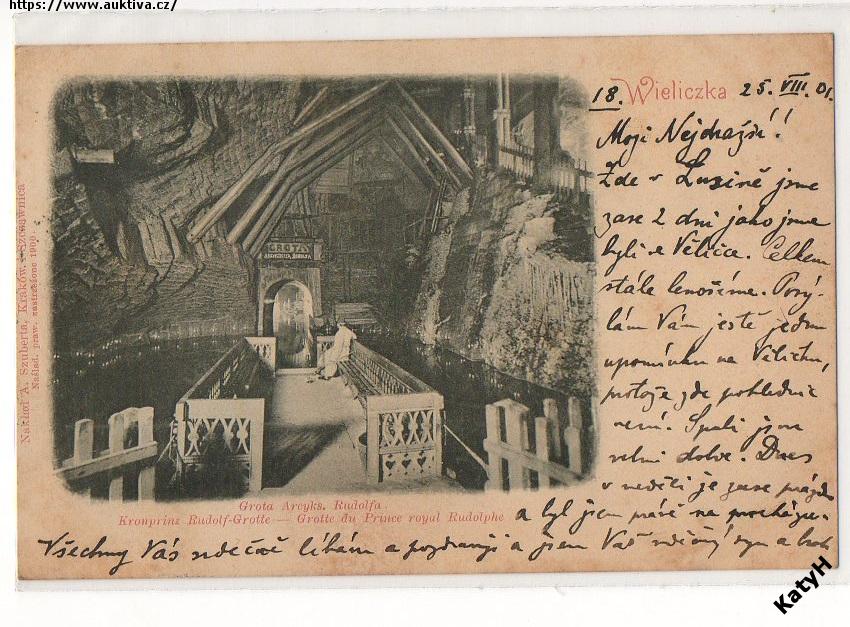 https://www.auktiva.cz/
18. Wieliczka 25. VIII. 01.
Moji Nejdražší!
Zde v Lusině jsme
zase 2 dni jako jsme
byli ve Věličce. Celkem
stále lenošíme. Posý-
lám Vám ještě jednu
upomínku na Věličku,
protože zde pohlednic
není. Spali jsme
velmi dobře. Dnes
v neděli je zase prázdno
a byl jsem právě na procházce.
Všechny Vás srdečně líbám a pozdravuji a jsem Váš vděčný syn a
GROTA
ARCYKSIĘCIA RUDOLFA
Nakład A. Szuberta, Kraków, Szczawnica
Naślad. praw. zastrzeżone 1900.
Grota Arcyks. Rudolfa
Kronprinz Rudolf-Grotte — Grotte du Prince royal Rudolphe
KatyH